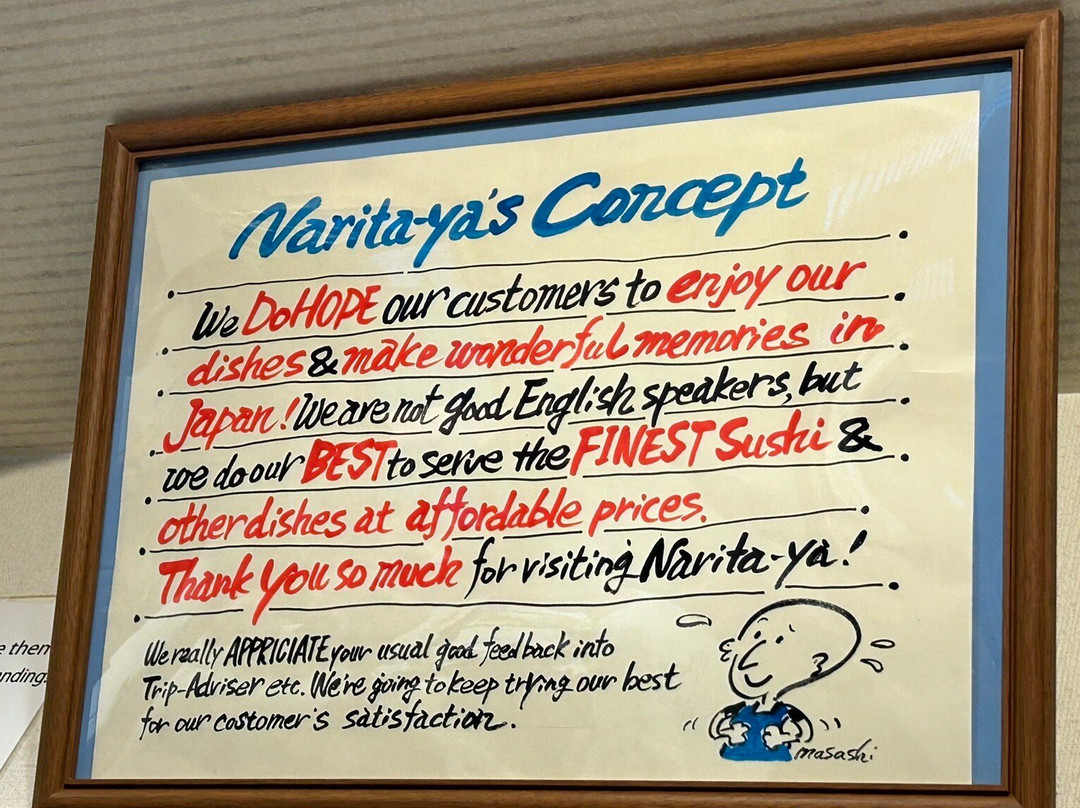 Narita-ya's Concept
We Do HOPE our customers to enjoy our
dishes & make wonderful memories in
Japan! We are not good English speakers, but
we do our BEST to serve the FINEST Sushi &
other dishes at affordable prices.
Thank You so much for visiting Narita-ya!
We really APPRICIATE your usual good feedback into
Trip-Adviser etc. We're going to keep trying our best
for our costomer's satisfaction.
masashi
e them
nding